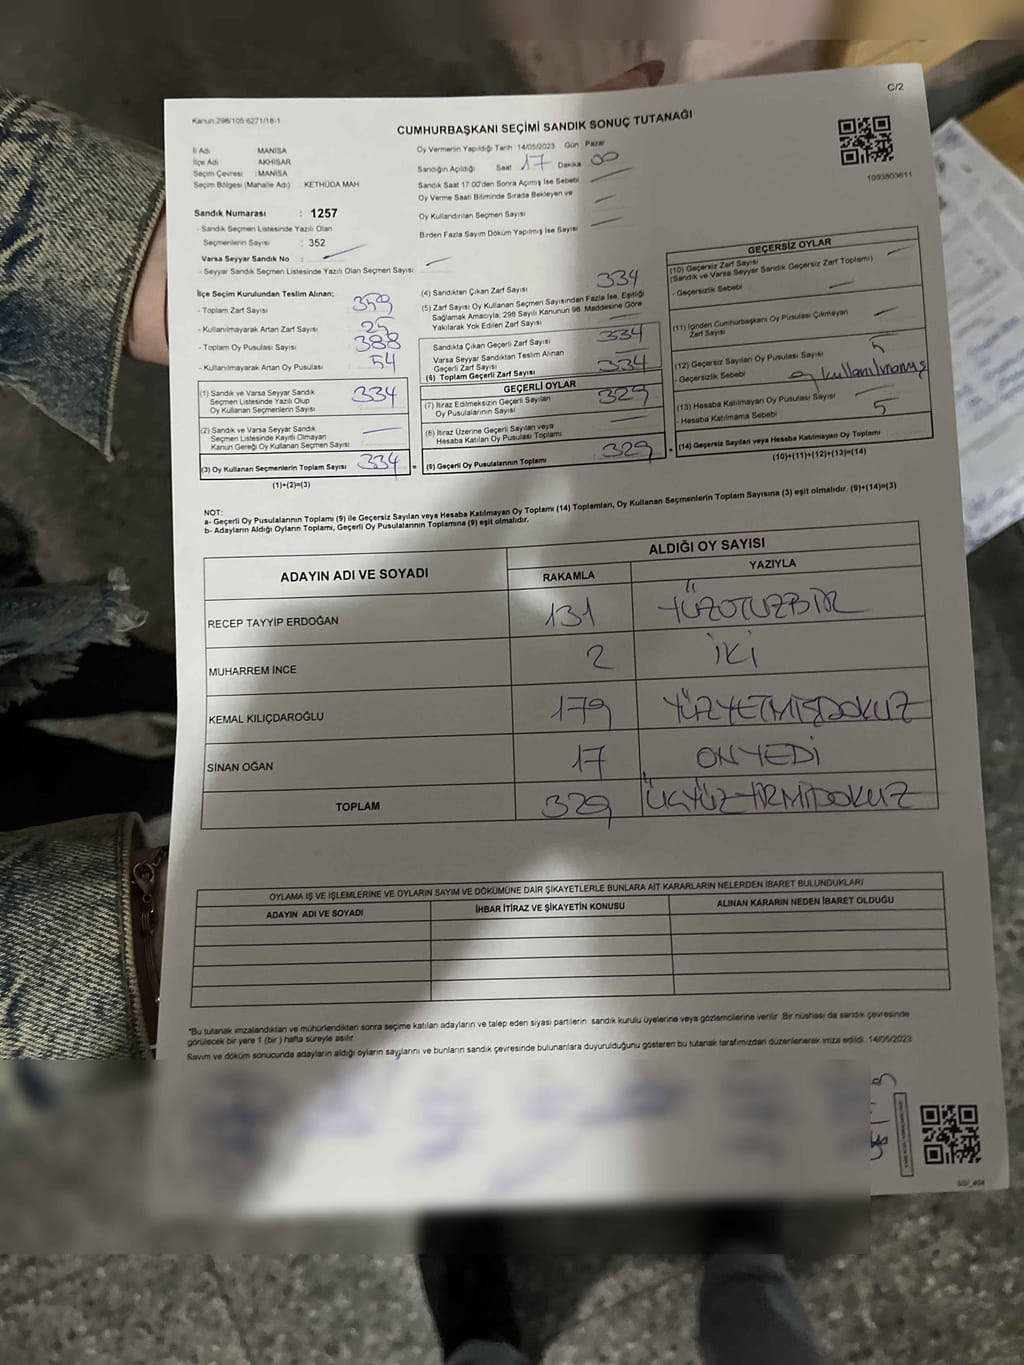 C/2
Kanun:298/105-6271/18-1
CUMHURBAŞKANI SEÇİMİ SANDIK SONUÇ TUTANAĞI
İl Adı MANİSA
İlçe Adı AKHİSAR
Seçim Çevresi : MANİSA
Seçim Bölgesi (Mahalle Adı) : KETHÜDA MAH
Oy Vermenin Yapıldığı Tarih :14/05/2023 Gün Pazar
Sandığın Açıldığı Saat 17 Dakika 00
Sandık Saat 17.00'den Sonra Açılmış İse Sebebi
Oy Verme Saati Bitiminde Sırada Bekleyen ve
Oy Kullandırılan Seçmen Sayısı
Birden Fazla Sayım Döküm Yapılmış İse Sayısı
1093803611
Sandık Numarası : 1257
- Sandık Seçmen Listesinde Yazılı Olan
Seçmenlerin Sayısı : 352
Varsa Seyyar Sandık No :
- Seyyar Sandık Seçmen Listesinde Yazılı Olan Seçmen Sayısı :
İlçe Seçim Kurulundan Teslim Alınan;
- Toplam Zarf Sayısı : 359
- Kullanılmayarak Artan Zarf Sayısı : 25
- Toplam Oy Pusulası Sayısı : 388
- Kullanılmayarak Artan Oy Pusulası : 54
(1) Sandık ve Varsa Seyyar Sandık
Seçmen Listesinde Yazılı Olup
Oy Kullanan Seçmenlerin Sayısı : 334
(2) Sandık ve Varsa Seyyar Sandık
Seçmen Listesinde Kayıtlı Olmayan
Kanun Gereği Oy Kullanan Seçmen Sayısı :
(3) Oy Kullanan Seçmenlerin Toplam Sayısı : 334
(1)+(2)=(3)
(4) Sandıktan Çıkan Zarf Sayısı : 334
(5) Zarf Sayısı Oy Kullanan Seçmen Sayısından Fazla İse, Eşitliği
Sağlamak Amacıyla, 298 Sayılı Kanunun 98. Maddesine Göre
Yakılarak Yok Edilen Zarf Sayısı
Sandıkta Çıkan Geçerli Zarf Sayısı : 334
Varsa Seyyar Sandıktan Teslim Alınan
Geçerli Zarf Sayısı
(6) Toplam Geçerli Zarf Sayısı : 334
GEÇERLİ OYLAR
(7) İtiraz Edilmeksizin Geçerli Sayılan
Oy Pusulalarının Sayısı : 329
(8) İtiraz Üzerine Geçerli Sayılan veya
Hesaba Katılan Oy Pusulası Toplamı :
(9) Geçerli Oy Pusulalarının Toplamı : 329
GEÇERSİZ OYLAR
(10) Geçersiz Zarf Sayısı
(Sandık ve Varsa Seyyar Sandık Geçersiz Zarf Toplamı)
- Geçersizlik Sebebi
(11) İçinden Cumhurbaşkanı Oy Pusulası Çıkmayan
Zarf Sayısı :
(12) Geçersiz Sayılan Oy Pusulası Sayısı : 5
- Geçersizlik Sebebi : oy kullanılmamış
(13) Hesaba Katılmayan Oy Pusulası Sayısı :
- Hesaba Katılmama Sebebi : 5
(14) Geçersiz Sayılan veya Hesaba Katılmayan Oy Toplamı
(10)+(11)+(12)+(13)=(14)
NOT:
a- Geçerli Oy Pusulalarının Toplamı (9) ile Geçersiz Sayılan veya Hesaba Katılmayan Oy Toplamı (14) Toplamları, Oy Kullanan Seçmenlerin Toplam Sayısına (3) eşit olmalıdır. (9)+(14)=(3)
b- Adayların Aldığı Oyların Toplamı, Geçerli Oy Pusulalarının Toplamına (9) eşit olmalıdır.
ADAYIN ADI VE SOYADI ALDIĞI OY SAYISI
RAKAMLA YAZIYLA
RECEP TAYYİP ERDOĞAN 131 YÜZOTUZBİR
MUHARREM İNCE 2 İKİ
KEMAL KILIÇDAROĞLU 179 YÜZYETMİŞDOKUZ
SİNAN OĞAN 17 ONYEDİ
TOPLAM 329 ÜÇYÜZYİRMİDOKUZ
OYLAMA İŞ VE İŞLEMLERİNE VE OYLARIN SAYIM VE DÖKÜMÜNE DAİR ŞİKAYETLERLE BUNLARA AİT KARARLARIN NELERDEN İBARET BULUNDUKLARI
ADAYIN ADI VE SOYADI İHBAR İTİRAZ VE ŞİKAYETİN KONUSU ALINAN KARARIN NEDEN İBARET OLDUĞU
*Bu tutanak imzalandıktan ve mühürlendikten sonra seçime katılan adayların ve talep eden siyasi partilerin sandık kurulu üyelerine veya gözlemcilerine verilir. Bir nüshası da sandık çevresinde
görülecek bir yere 1 (bir) hafta süreyle asılır.
Sayım ve döküm sonucunda adayların aldığı oyların sayılarını ve bunların sandık çevresinde bulunanlara duyurulduğunu gösteren bu tutanak tarafımızdan düzenlenerek imza edildi. 14/05/2023